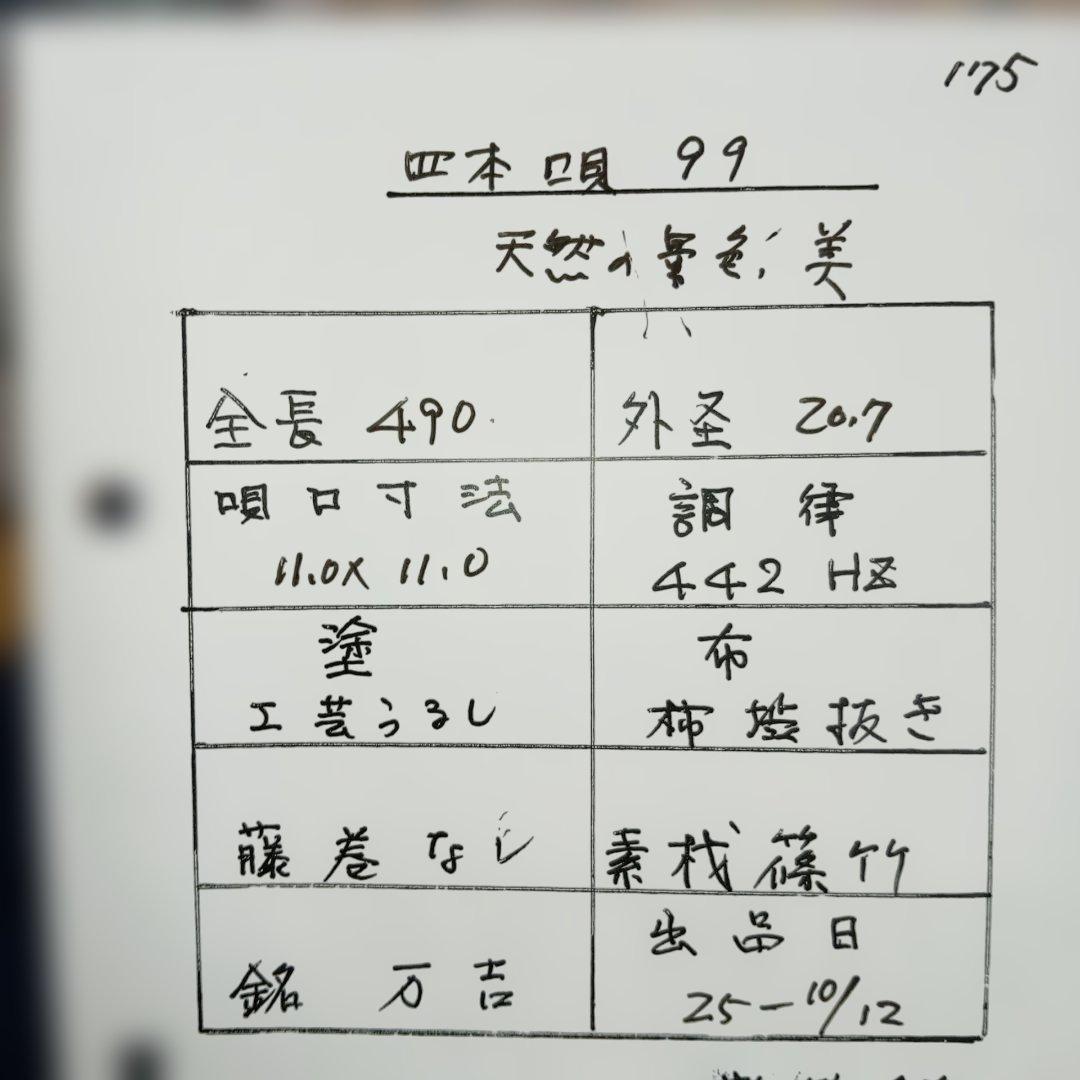 175
四本唄 99
天然の景色美
全長 490
外圣 20.7
唄口寸法
11.0X 11.0
調律
442 HZ
塗
工芸うるし
布
柿渋抜き
藤巻なし
素材篠竹
銘 万吉
出品日
25-10/12